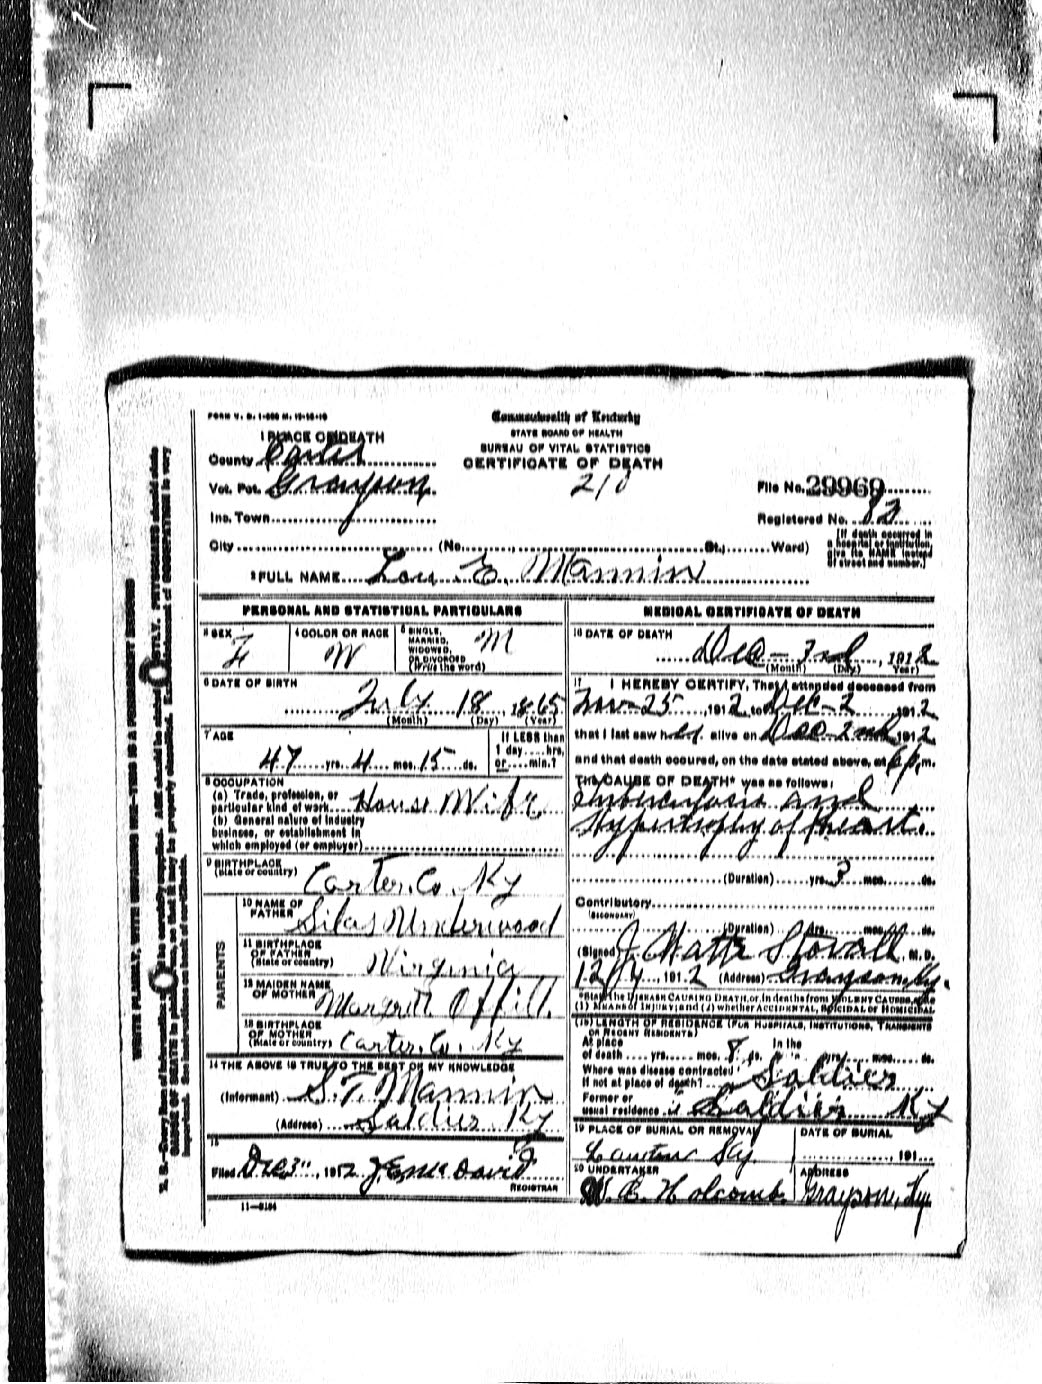 FORM V. S. 1-500 M. 12-16-10
Commonwealth of Kentucky
STATE BOARD OF HEALTH
BUREAU OF VITAL STATISTICS
CERTIFICATE OF DEATH
210
1 PLACE OF DEATH
County Carter
Vot. Pct. Grayson
Inc. Town
City (No. St., Ward)
File No. 29969
Registered No. 82
[If death occurred in
a hospital or institution,
give its NAME instead
of street and number.]
2 FULL NAME Lou E. Mannin
PERSONAL AND STATISTICAL PARTICULARS
3 SEX F
4 COLOR OR RACE W
5 SINGLE, MARRIED, WIDOWED, OR DIVORCED (Write the word) M
6 DATE OF BIRTH
July 18 1865
(Month) (Day) (Year)
7 AGE
47 yrs. 4 mos. 15 ds.
If LESS than
1 day....hrs.
or....min.?
8 OCCUPATION
(a) Trade, profession, or
particular kind of work House Wife
(b) General nature of industry
business, or establishment in
which employed (or employer)
9 BIRTHPLACE
(State or country) Carter Co. Ky
PARENTS
10 NAME OF
FATHER Silas Underwood
11 BIRTHPLACE
OF FATHER
(State or country) Virginia
12 MAIDEN NAME
OF MOTHER Margrett Offill
13 BIRTHPLACE
OF MOTHER
(State or country) Carter. Co. Ky
14 THE ABOVE IS TRUE TO THE BEST OF MY KNOWLEDGE
(Informant) S. T. Mannin
(Address) Soldier Ky
15
Filed Dec 3", 1912 J. E. McDavid
REGISTRAR
11—5184
MEDICAL CERTIFICATE OF DEATH
16 DATE OF DEATH
Dec - 3rd, 1912
(Month) (Day) (Year)
17 I HEREBY CERTIFY, That I attended deceased from
Nov-25, 1912 to Dec-2, 1912
that I last saw her alive on Dec-2nd 1912
and that death occured, on the date stated above, at 6 p. m.
The CAUSE OF DEATH* was as follows:
Tuberculosis and
Hypertrophy of heart.
(Duration) yrs. 3 mos. ds.
Contributory
(SECONDARY)
(Duration) yrs. mos. ds.
(Signed) J. Watts Stovall, M. D.
12/4, 1912 (Address) Grayson, Ky.
*State the DISEASE CAUSING DEATH, or, in deaths from VIOLENT CAUSES, state
(1) MEANS OF INJURY; and (2) whether ACCIDENTAL, SUICIDAL OR HOMICIDAL
(18) LENGTH OF RESIDENCE (FOR HOSPITALS, INSTITUTIONS, TRANSIENTS
OR RECENT RESIDENTS)
At place In the
of death yrs. mos. 8 ds. yrs. mos. ds.
Where was disease contracted
if not at place of death? Soldier
Former or
usual residence Soldier Ky
19 PLACE OF BURIAL OR REMOVAL
Ky.
DATE OF BURIAL
, 191
20 UNDERTAKER
W. B. Holcomb
ADDRESS
Grayson, Ky.
WRITE PLAINLY, WITH UNFADING INK—THIS IS A PERMANENT RECORD
N. B.—Every item of information should be carefully supplied. AGE should be stated EXACTLY. PHYSICIANS should state
CAUSE OF DEATH in plain terms, so that it may be properly classified. Exact statement of OCCUPATION is very
important. See instructions on back of certificate.